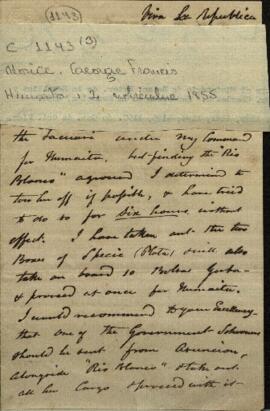 (1143)
Viva La Republica
C 1143 (3)
Morice, George Francis
Humaitá, 2 noviembre 1855
the Tacuari under my Command
for Humaita, but finding the "Rio
Blanco" aground I determined to
tow her off if possible, & have tried
to do so for Six hours without
effect. I have taken out the two
Boxes of Specie (Plata) & will also
take on board 10 Bolsas Yerba
& proceed at once for Humaita.
I would recommend to your Excellency
that one of the Government Schooners
should be sent from Asuncion,
alongside "Rio Blanco" & take out
all her Cargo & proceed with it